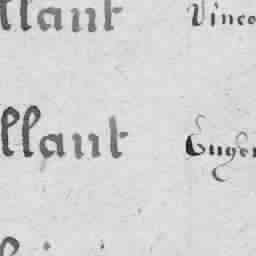 llant Vince
llant Eugen